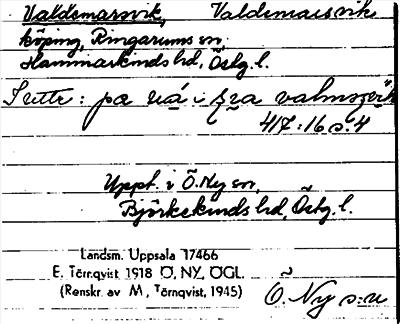 Valdemarsvik, Valdemarsvik
köping, Ringarums sn.
Hammarkinds hd, Östg. l.
I uttr: på
417:16 s. 4
Uppt. i Ö. Ny sn,
Björkekinds hd, Östg. l.
Landsm. Uppsala 17466
E. Törnqvist 1918 Ö. NY, ÖGL.
(Renskr. av M. Törnqvist, 1945)
Ö. Ny s:n